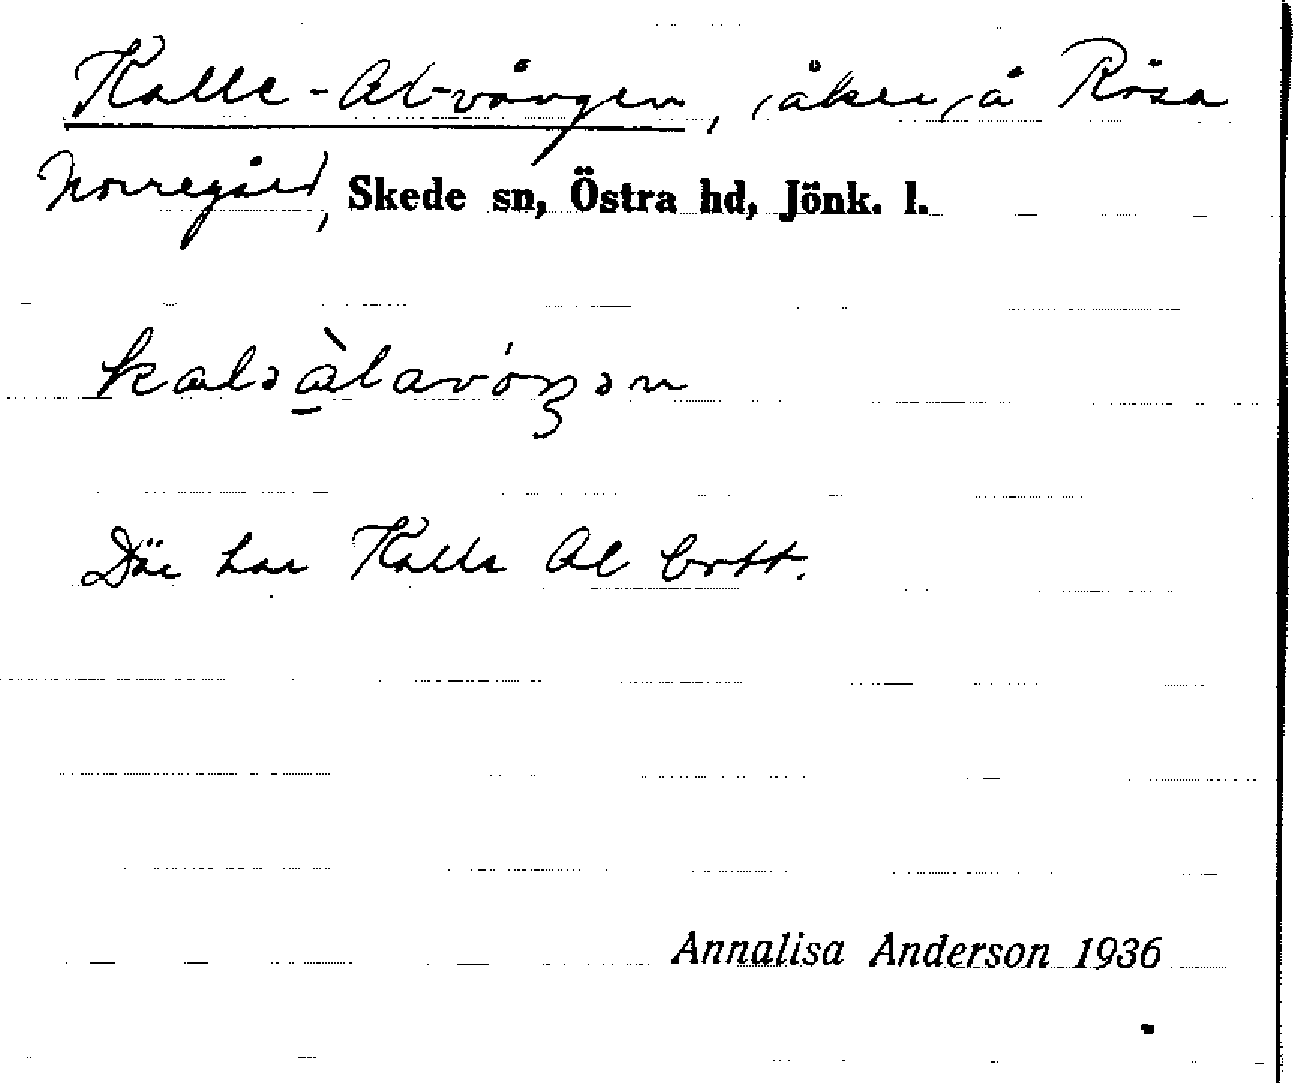 Kalle-Alvången, åker å Rösa
Norregård, Skede sn, Östra hd, Jönk. l.
kaləàlavóŋən
Där har Kalle Al bott.
Annalisa Anderson 1936